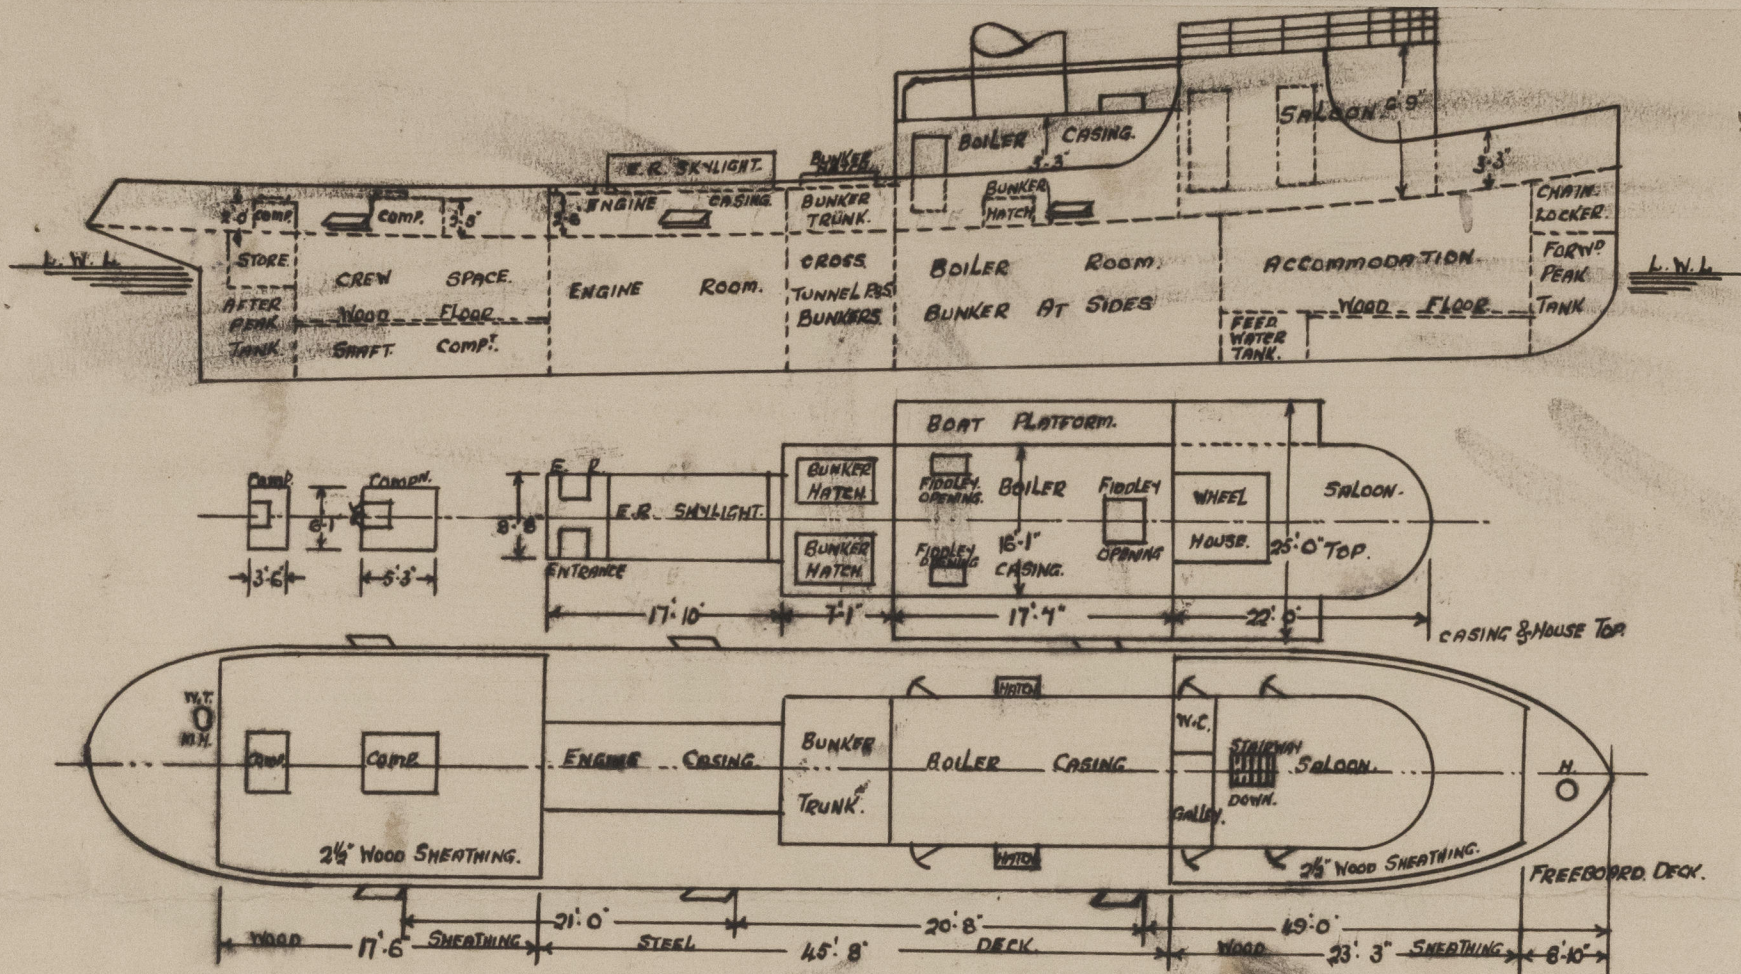 SALOON 6'-9"
BOILER CASING.
3'-3"
3'-3"
E.R. SKYLIGHT.
BUNKER
HATCH
2'-0" COMP. COMP. 2'-8"
ENGINE CASING.
BUNKER
TRUNK.
BUNKER
HATCH
CHAIN
LOCKER.
L.W.L.
STORE.
CREW SPACE.
ENGINE ROOM.
CROSS
TUNNEL P&S
BUNKERS
BOILER ROOM.
BUNKER AT SIDES
ACCOMMODATION.
FORWD
PEAK
TANK
L.W.L
AFTER
PEAK
TANK.
WOOD FLOOR
SHAFT COMPT.
WOOD FLOOR
FEED
WATER
TANK.
BOAT PLATFORM.
COMP. COMPN.
E. R.
ENTRANCE
E.R. SKYLIGHT.
BUNKER
HATCH
BUNKER
HATCH
FIDDLEY
OPENING.
BOILER
FIDDLEY
OPENING
WHEEL
HOUSE.
SALOON.
6'-1"
8'-8"
FIDDLEY
OPENING
16'-1"
CASING.
25'-0" TOP.
3'-6" 5'-3"
17'-10" 7'-1" 17'-4" 22'-0"
CASING & HOUSE TOP.
W.T.
M.H.
COMP. COMP.
ENGINE CASING.
BUNKER
TRUNK.
HATCH
BOILER CASING
HATCH
W.C.
GALLEY.
STAIRWAY
DOWN.
SALOON.
H.
2½" WOOD SHEATHING.
2½" WOOD SHEATHING.
FREEBOARD DECK.
21'-0" 20'-8" 49'-0"
WOOD 17'-6" SHEATHING STEEL 45'-8" DECK. WOOD 23'-3" SHEATHING 8'-10"